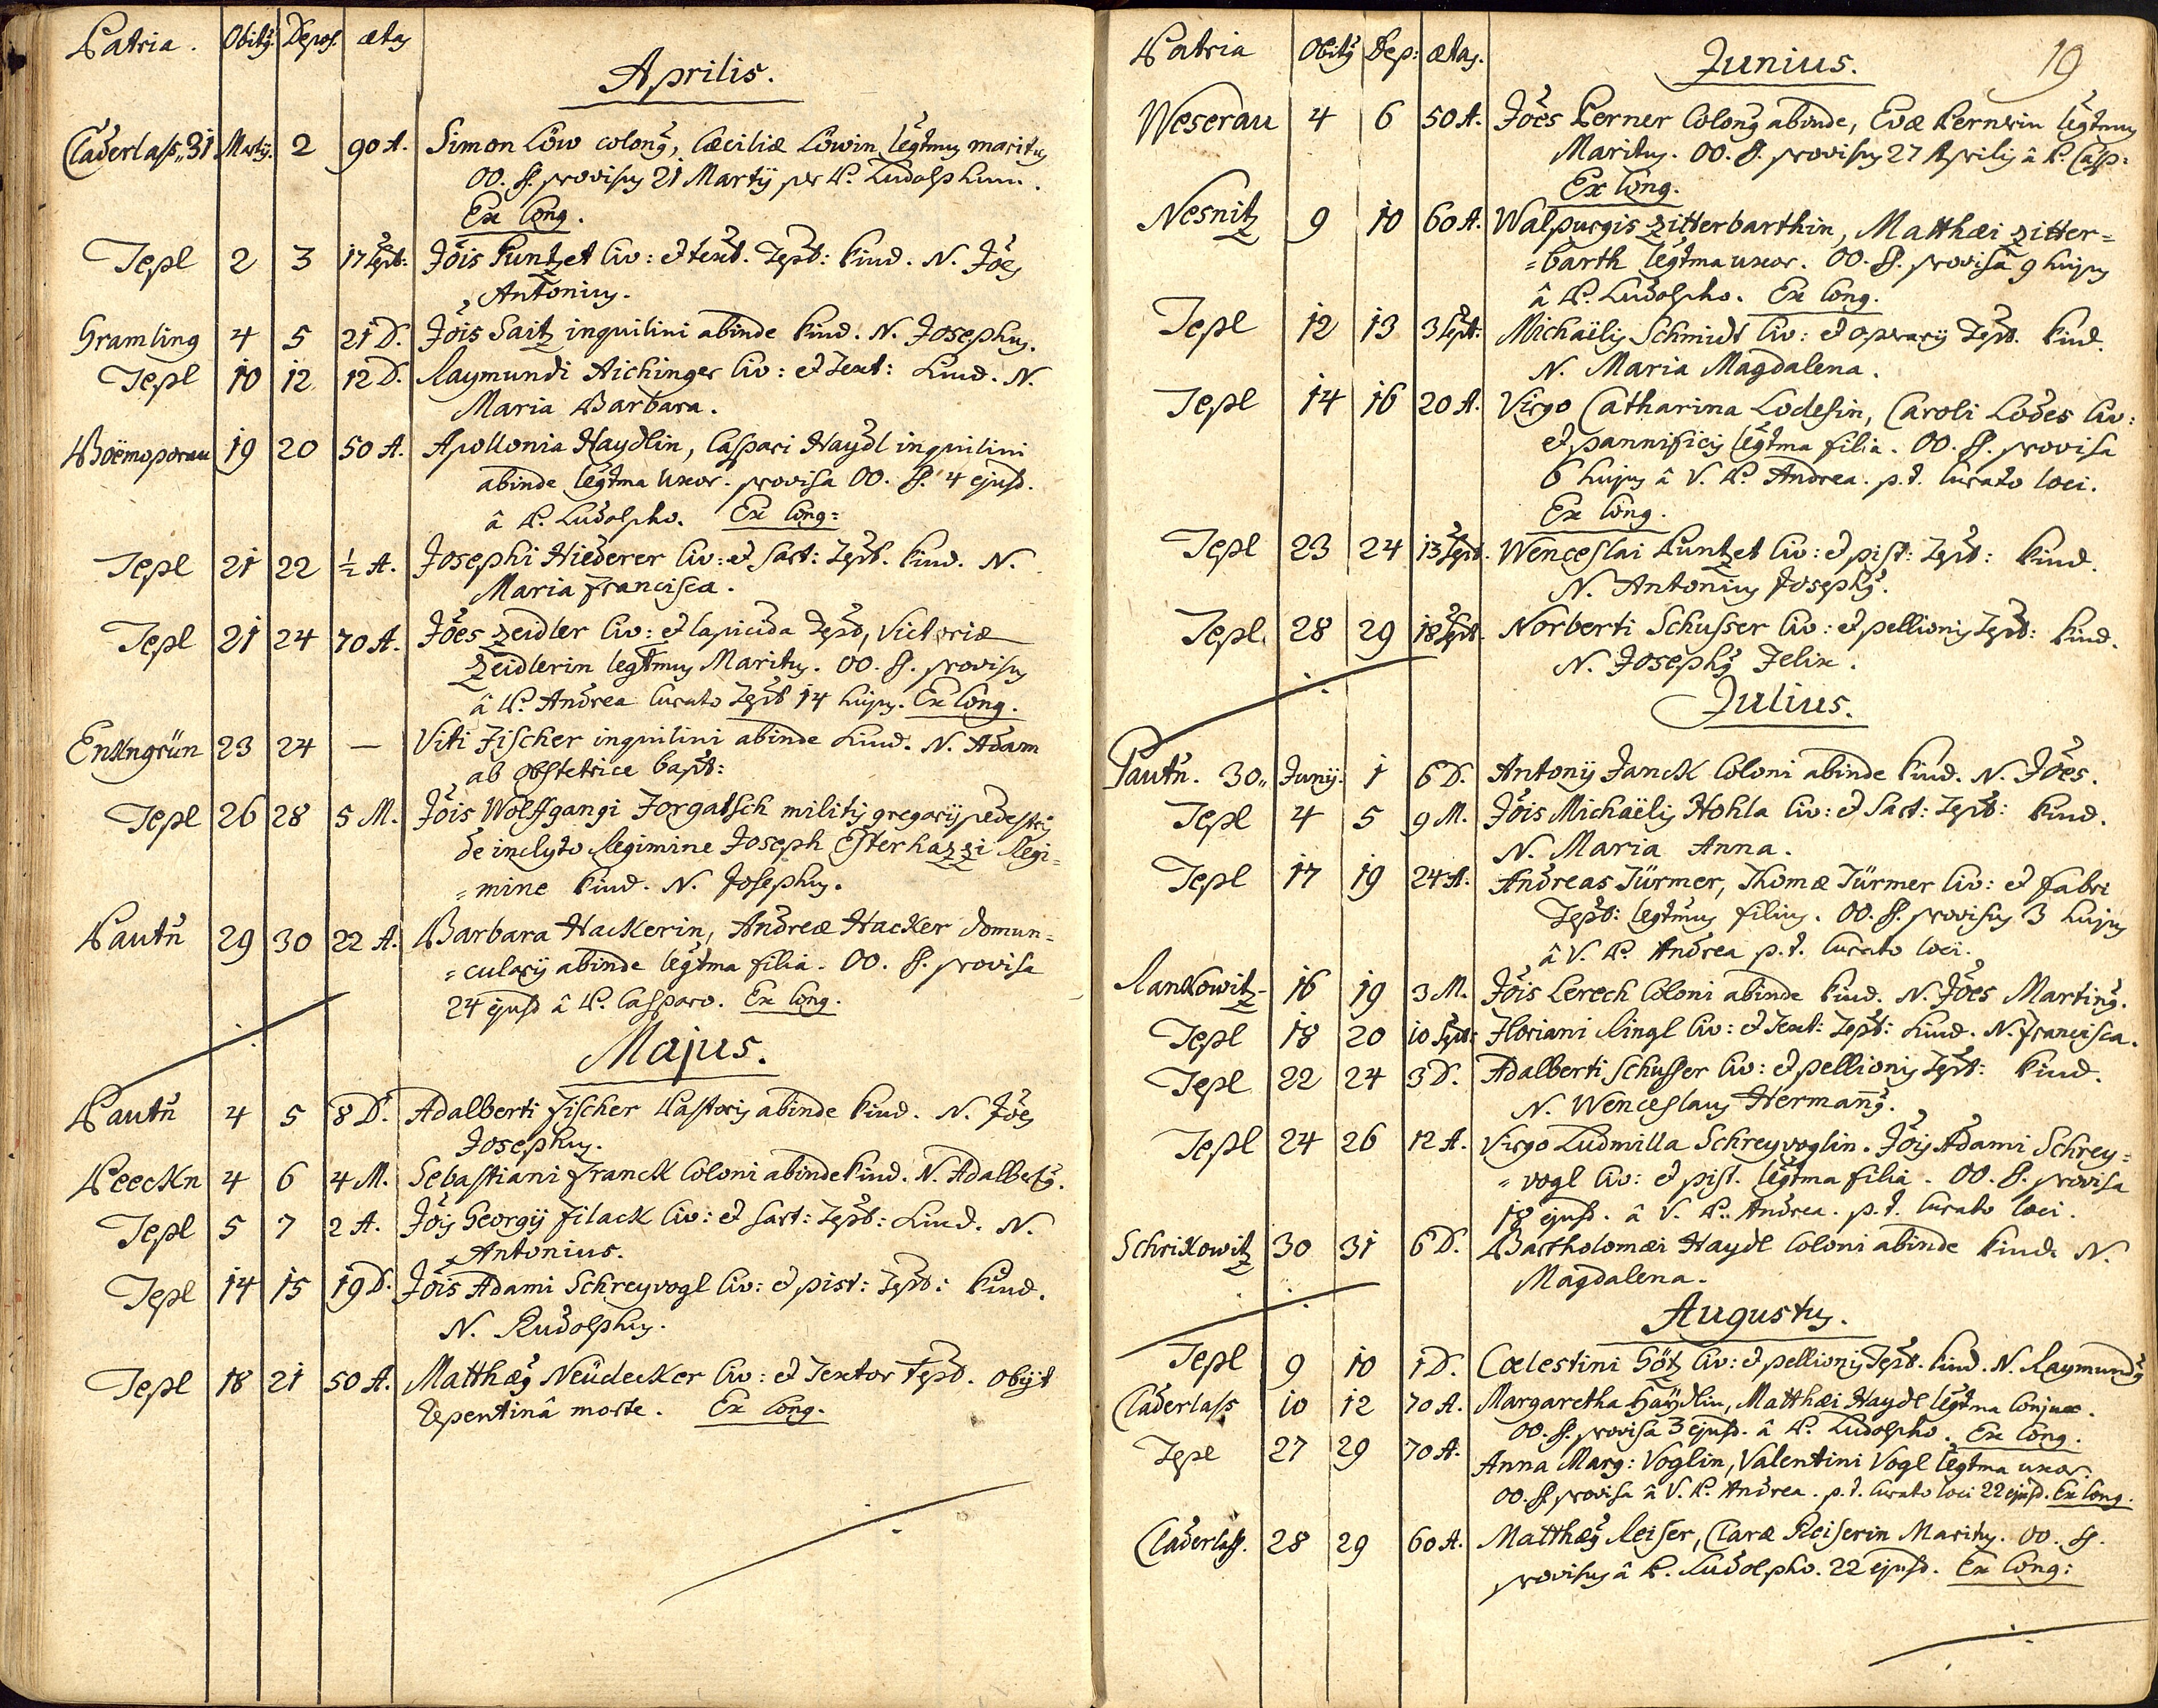 Patria. Obitq Depos. ætas
Aprilis.
Czaderlass. 31 Martij. 2 90 A. Simon Löw colong, Cæciliæ Löwin legtmus maritus
OO. SS. provisus 21 Martij per P. Ludolphum.
Ex Cong.
Tepl 2 3 17 Sept: Jois Puntzet Civ: et text. Tepl: kind. N. Joes
Antonius.
Gramling 4 5 21 D. Jois Saitz inquilini abinde kind. N. Josephus.
Tepl 10 12 12 D. Raymundi Aichinger Civ: et Text: kind. N.
Maria Barbara.
Boëmoporau 19 20 50 A. Apollonia Haydlin, Caspari Haydl inquilini
abinde legtma uxor. provisa OO. SS. 4 ejusd.
â P. Ludolpho. Ex Cong:
Tepl 21 22 ½ A. Josephi Hiederer Civ: et Sart: Tepl. kind. N.
Maria Francisca.
Tepl 21 24 70 A. Joes Zeidler Civ: et lapicida Tepl, Victoriæ
Zeidlerin legtmus Maritus. OO. SS. provisus
â P. Andrea Curato Tepl 14 hujus. Ex Cong.
Enkngrün 23 24 — Viti Fischer inquilini abinde kind. N. Adam
ab obstetrice bapt:
Tepl 26 28 5 M. Jois Wolfgangi Forgatsch militis gregarij pedestris
de inclyto Regimine Joseph Esterhazzi Regi=
=mine kind. N. Josephus.
Pautn 29 30 22 A. Barbara Hackerin, Andreæ Hacker domun=
=cularij abinde legtma filia. OO. SS. provisa
24 ejusd â P. Casparo. Ex Cong.
Majus.
Pautn 4 5 8 D. Adalberti Fischer Pastoris abinde kind. N. Joes
Josephus.
Peeckn 4 6 4 M. Sebastiani Franck Coloni abinde kind. N. Adalbertg.
Tepl 5 7 2 A. Jois Georgij Filack Civ: et Sart: Tepl: kind. N.
Antonius.
Tepl 14 15 19 D. Jois Adami Schreyvogl Civ: et pist: Tepl: kind.
N. Rudolphus.
Tepl 18 21 50 A. Matthæg Neüdecker Civ: et Textor Tepl. obijt
repentinâ morte. Ex Cong.
Patria Obitq Dep: ætas.
Junius. 19
Weserau 4 6 50 A. Joes Perner Colong abinde, Evæ Pernerin legtmus
Maritus. OO. SS. provisus 27 Aprilis â P. Casp:
Ex Cong.
Nesnitz 9 10 60 A. Walpurgis Zitterbarthin, Matthæi Zitter=
=barth legtma uxor. OO. SS. provisa 9 hujus
â P. Ludolpho. Ex Cong.
Tepl 12 13 3 Sept: Michaëlis Schmidt Civ: et operarij Tepl. kind.
N. Maria Magdalena.
Tepl 14 16 20 A. Virgo Catharina Lodesin, Caroli Lodes Civ:
et pannificis legtma filia. OO. SS. provisa
6 hujus â V. P. Andrea. p. t. Curato loci.
Ex Cong.
Tepl 23 24 13 Sept. Wenceslai Puntzet Civ: et pist: Tepl: kind.
N. Antonius Josephg.
Tepl. 28 29 18 Sept. Norberti Schusser Civ: et pellionis Tepl: kind.
N. Josephg Felix.
Julius.
Pautn. 30. Junij. 1 6 D. Antonij Janck Coloni abinde kind. N. Joes.
Tepl 4 5 9 M. Jois Michaëlis Hohla Civ: et Sart: Tepl: kind.
N. Maria Anna.
Tepl 17 19 24 A. Andreas Türmer, Thomæ Türmer Civ: et fabri
Tepl: legtmus filius. OO. SS. provisus 3 hujus
â V. P. Andrea p. t. Curato loci.
Rankowitz 16 19 3 M. Jois Lerech Coloni abinde kind. N. Joes Marting.
Tepl 18 20 10 Sept: Floriani Ringl Civ: et Text: Tepl: kind. N. Francisca.
Tepl 22 24 3 D. Adalberti Schusser Civ: et pellionis Tepl: kind.
N. Wenceslaus Hermang.
Tepl 24 26 12 A. Virgo Ludmilla Schreyvoglin. Jois Adami Schrey=
=vogl Civ: et pist. legtma filia. OO. SS. provisa
18 ejusd. â V. P. Andrea. p. t. Curato loci.
Schrikowitz 30 31 6 D. Bartholomæi Haydl Coloni abinde kind. N.
Magdalena.
Augustus.
Tepl 9 10 1 D. Cœlestini Götz Civ: et pellionis Tepl. kind. N. Raymundg
Czaderlass 10 12 70 A. Margaretha Haydlin, Matthæi Haydl legtma Conjux.
OO. SS. provisa 3 ejusd. â P. Ludolpho. Ex Cong.
Tepl 27 29 70 A. Anna Marg: Voglin, Valentini Vogl legtma uxor.
OO. SS. provisa â V. P. Andrea. p. t. Curato loci 22 ejusd. Ex Cong.
Czaderlass. 28 29 60 A. Matthæg Reiser, Claræ Reiserin Maritus. OO. SS.
provisus â P. Ludolpho. 22 ejusd. Ex Cong: